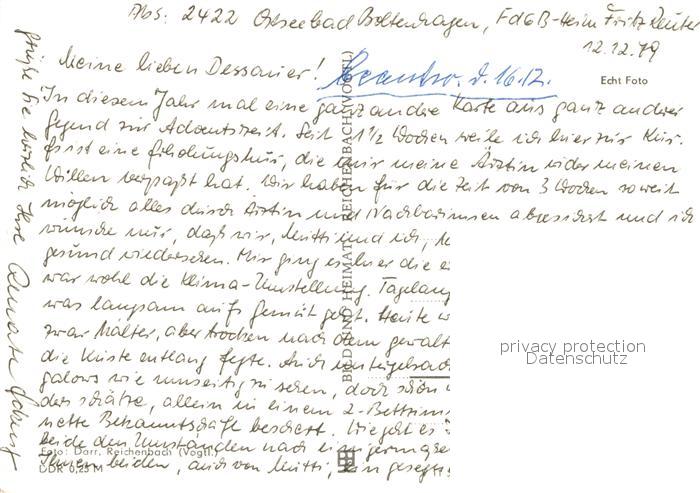 Abs: 2422 Ostseebad Boltenhagen, FdGB-Heim Fritz Reuter
12.12.79
Meine lieben Dessauer!
beantw. d. 16.12.
Echt Foto
In diesem Jahr mal eine ganz andre Karte aus ganz andrer
Gegend zur Adventszeit. Seit 1 1/2 Wochen weile ich hier zur Kur.
Es ist eine Erholungskur, die mir meine Ärztin wider meinen
Willen verpaßt hat. Wir haben für die Zeit von 3 Wochen soweit
möglich alles durch Ärztin und Nachbarinnen abgesichert und ich
wünsche nur, daß wir, Mutti und ich,
gesund wiedersehen. Mir ging es hier die
war wohl die Klima-Umstellung. Tagelang
was langsam aufs Gemüt geht. Heute
zwar kälter, aber trocken nach dem
die Küste entlang fegte. Auch
wie umseitig zu sehen, doch schön
allein in einem 2-Bettzimm
nette Bekanntschaft beschert. Wie geht es
beide den Umständen nach einigermaße
Ihnen beiden, auch von Mutti, ein
Grüße Sie herzlich Ihre
BILD UND HEIMAT REICHENBACH (VOGTL)
Foto: Darr, Reichenbach (Vogtl.)
DDR 0,25 M
privacy protection
Datenschutz